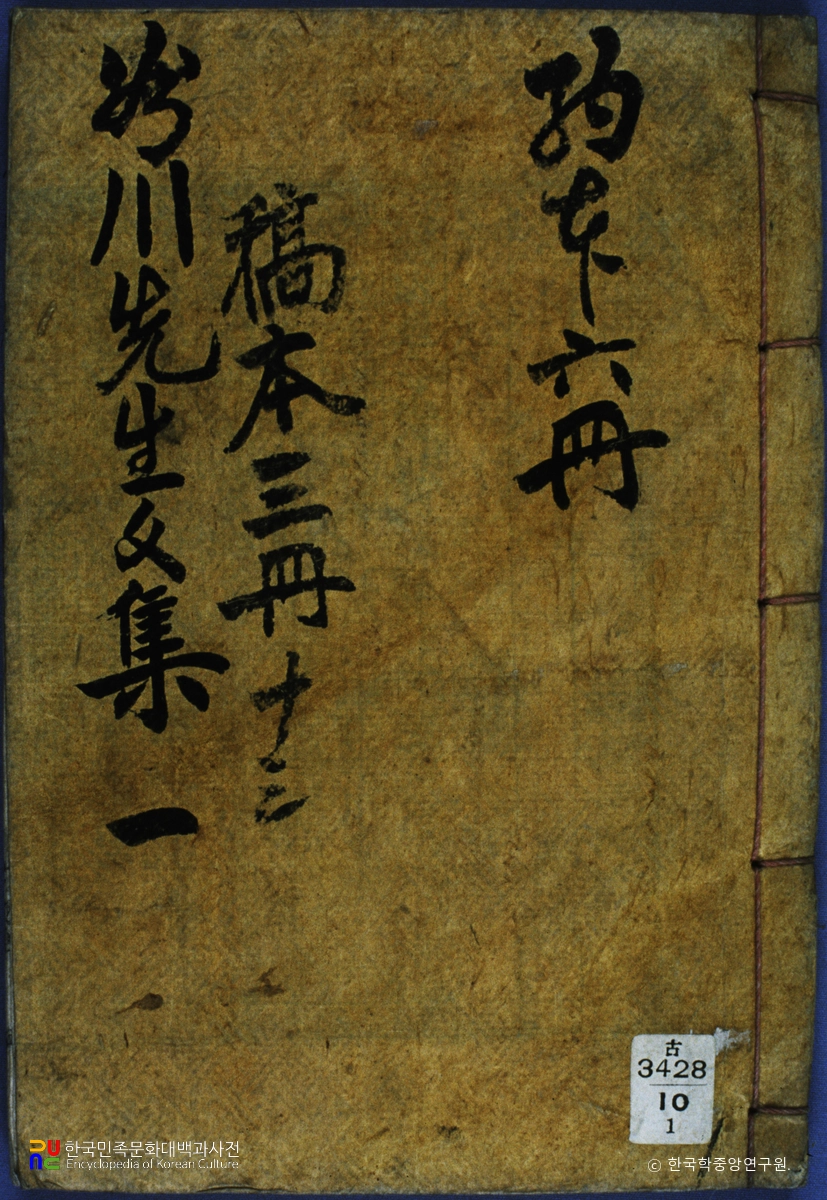 本六冊
稿本三冊
川先生文集 一
古
3428
10
1
한국민족문화대백과사전
Encyclopedia of Korean Culture
© 한국학중앙연구원